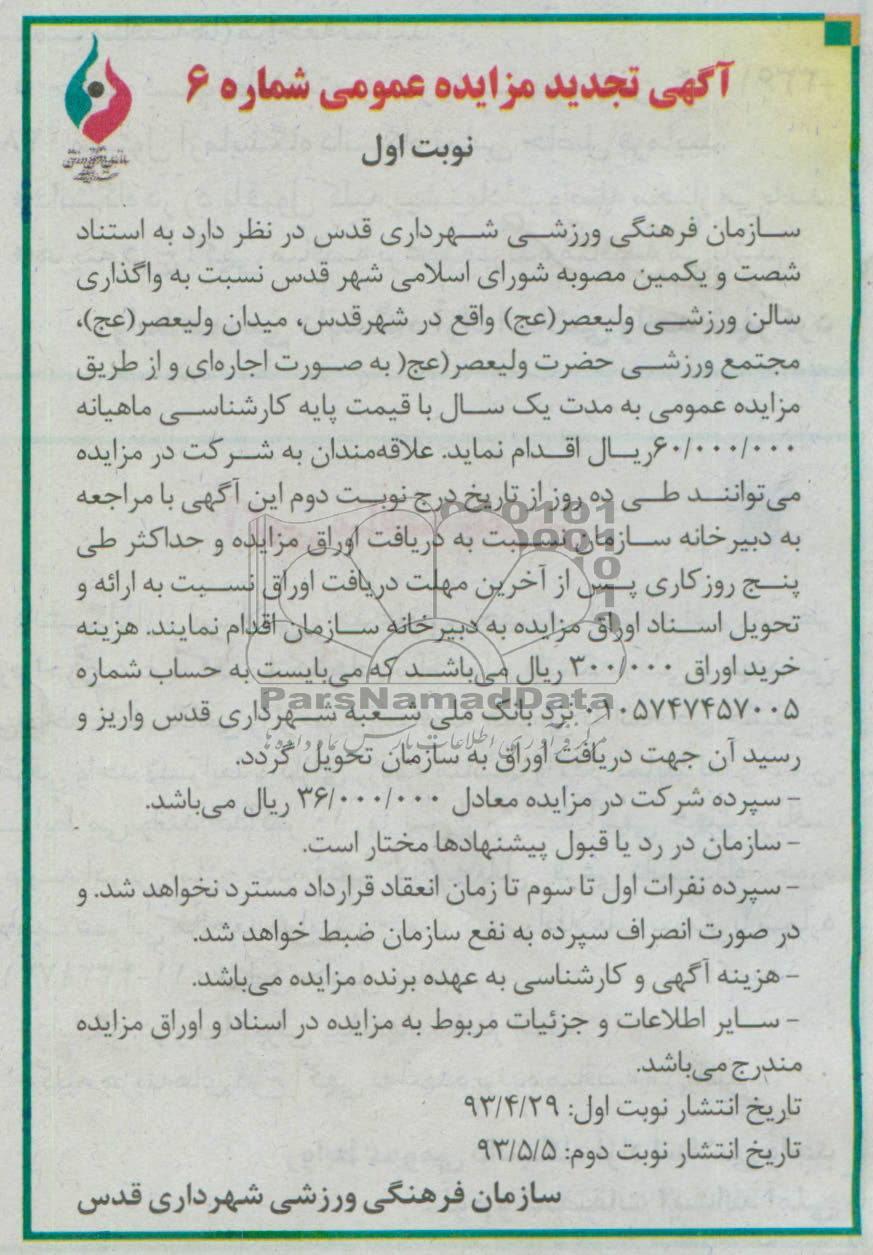 آگهی تجدید مزایده عمومی شماره ۶
نوبت اول
سازمان فرهنگی ورزشی شهرداری قدس در نظر دارد به استناد
شصت و یکمین مصوبه شورای اسلامی شهر قدس نسبت به واگذاری
سالن ورزشی ولیعصر(عج) واقع در شهرقدس، میدان ولیعصر(عج)،
مجتمع ورزشی حضرت ولیعصر(عج( به صورت اجاره‌ای و از طریق
مزایده عمومی به مدت یک سال با قیمت پایه کارشناسی ماهیانه
۶۰/۰۰۰/۰۰۰ریال اقدام نماید. علاقه‌مندان به شرکت در مزایده
می‌توانند طی ده روز از تاریخ درج نوبت دوم این آگهی با مراجعه
به دبیرخانه سازمان نسبت به دریافت اوراق مزایده و حداکثر طی
پنج روزکاری پس از آخرین مهلت دریافت اوراق نسبت به ارائه و
تحویل اسناد اوراق مزایده به دبیرخانه سازمان اقدام نمایند. هزینه
خرید اوراق ۳۰۰/۰۰۰ ریال می‌باشد که می‌بایست به حساب شماره
۰۱۰۵۷۴۷۴۵۷۰۰۵ نزد بانک ملی شعبه شهرداری قدس واریز و
رسید آن جهت دریافت اوراق به سازمان تحویل گردد.
- سپرده شرکت در مزایده معادل ۳۶/۰۰۰/۰۰۰ ریال می‌باشد.
- سازمان در رد یا قبول پیشنهادها مختار است.
- سپرده نفرات اول تا سوم تا زمان انعقاد قرارداد مسترد نخواهد شد. و
در صورت انصراف سپرده به نفع سازمان ضبط خواهد شد.
- هزینه آگهی و کارشناسی به عهده برنده مزایده می‌باشد.
- سایر اطلاعات و جزئیات مربوط به مزایده در اسناد و اوراق مزایده
مندرج می‌باشد.
تاریخ انتشار نوبت اول: ۹۳/۴/۲۹
تاریخ انتشار نوبت دوم: ۹۳/۵/۵
سازمان فرهنگی ورزشی شهرداری قدس
ParsNamadData
مرکز فرآوری اطلاعات پارس نماد داده‌ها